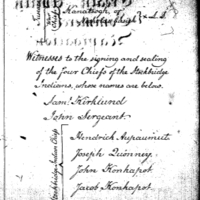 Kanatsogh, of
Witnesses to the signing and sealing
of the four Chiefs of the Stockbridge
Indians, whose names are below.
Sam. Kirklund
John Sergeant
Stockbridge Indian Chiefs
Hendrick Aupaumut
Joseph Quonney
John Konkapot
Jacob Konkapot